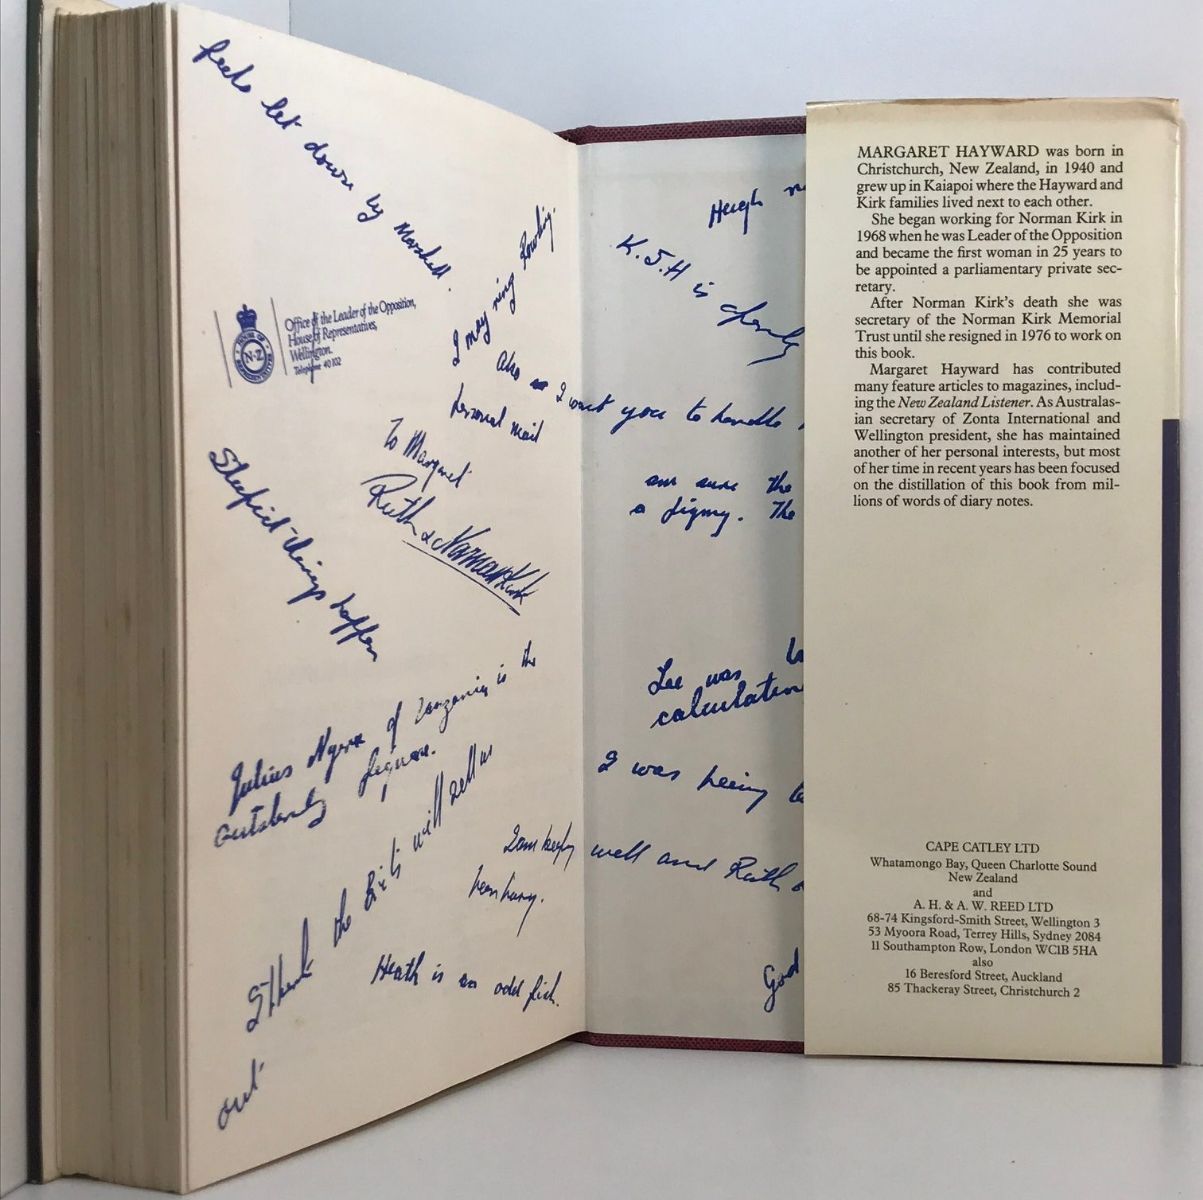 feels let down by Marshall.
I may ring Rowling.
Office of the Leader of the Opposition,
House of Representatives,
Wellington.
Telephone 40 102
HOUSE OF
N·Z
REPRESENTATIVES
Also I want you to handle
personal mail
To Margaret
Ruth & Norman Kirk
Stupid things happen
Julius Nyerere of Tanzania is the
outstanding figure.
I think the Brits will sell us
out.
I am keeping well and Ruth
Heath is an odd fish.
Hugh
K.J.H is openly
am sure the
a pigmy. The
Lee was
calculating
I was being
God
MARGARET HAYWARD was born in
Christchurch, New Zealand, in 1940 and
grew up in Kaiapoi where the Hayward and
Kirk families lived next to each other.
She began working for Norman Kirk in
1968 when he was Leader of the Opposition
and became the first woman in 25 years to
be appointed a parliamentary private sec-
retary.
After Norman Kirk's death she was
secretary of the Norman Kirk Memorial
Trust until she resigned in 1976 to work on
this book.
Margaret Hayward has contributed
many feature articles to magazines, includ-
ing the New Zealand Listener. As Australas-
ian secretary of Zonta International and
Wellington president, she has maintained
another of her personal interests, but most
of her time in recent years has been focused
on the distillation of this book from mil-
lions of words of diary notes.
CAPE CATLEY LTD
Whatamongo Bay, Queen Charlotte Sound
New Zealand
and
A. H. & A. W. REED LTD
68-74 Kingsford-Smith Street, Wellington 3
53 Myoora Road, Terrey Hills, Sydney 2084
11 Southampton Row, London WC1B 5HA
also
16 Beresford Street, Auckland
85 Thackeray Street, Christchurch 2